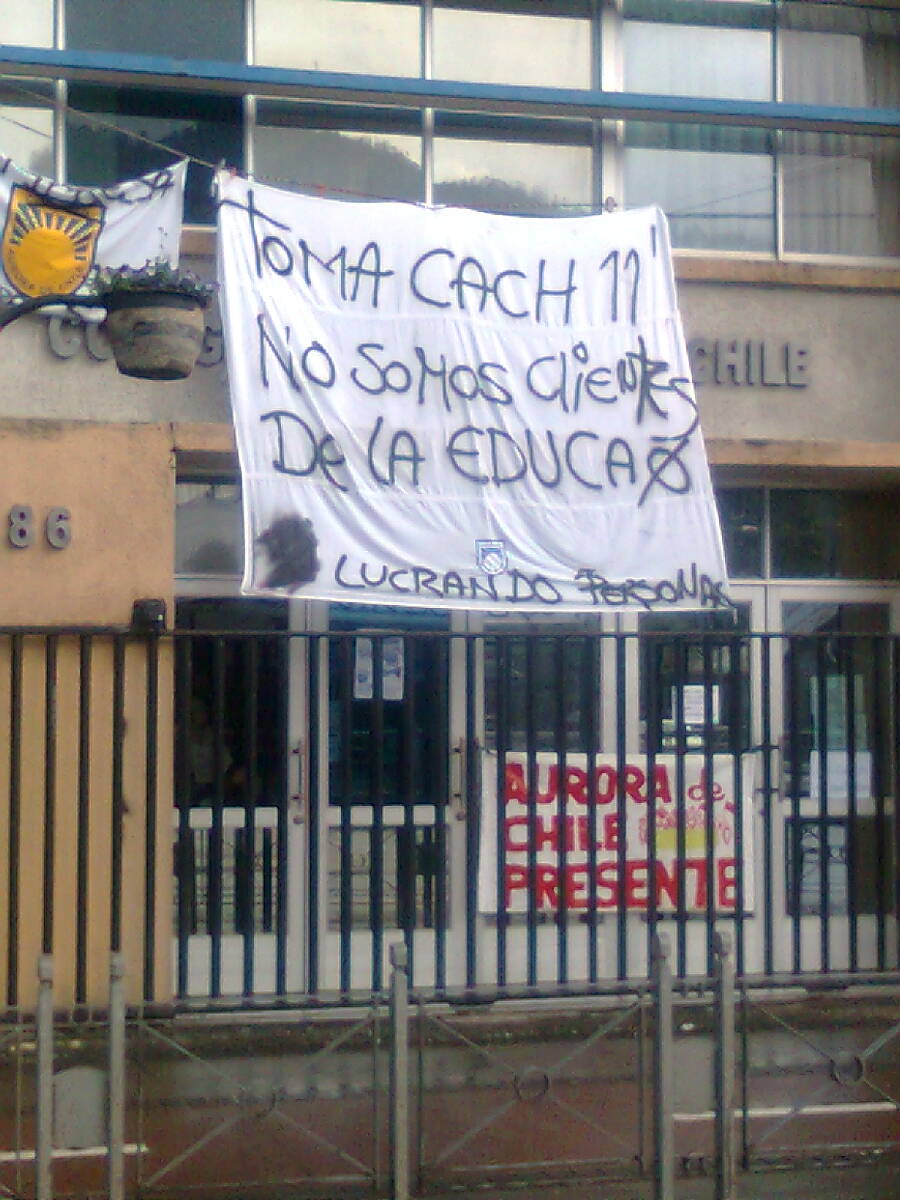 TOMA CACH 11'
No SoMos Clientes
De LA EDUCAØ
LUCRANDO PERSONAS
CHILE
86
AURORA de
CHILE
PRESENTE